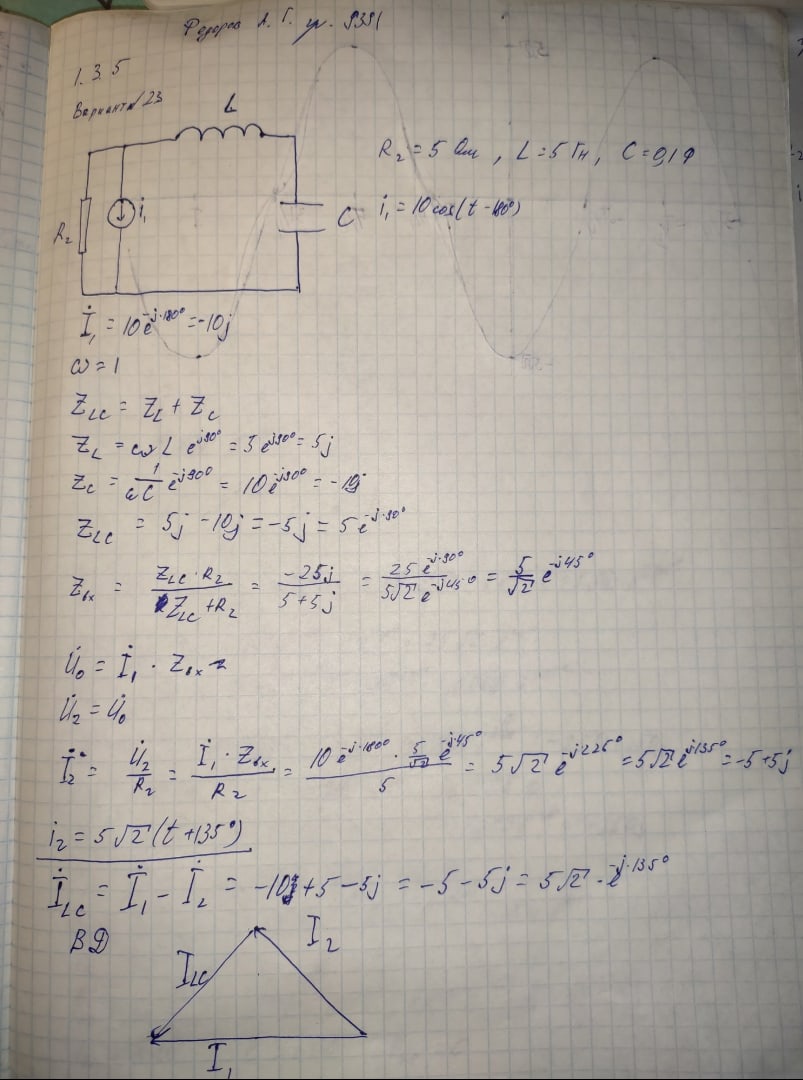 Федоров А. Г. гр. 9391
1.3.5
Вариант №23
L
R₂ = 5 Ом, L = 5 Гн, C = 0,1 Ф
R₂
i₁
C
i₁ = 10 cos(t - 180°)
İ₁ = 10 e^(-j·180°) = -10j
ω = 1
Z_LC = Z_L + Z_C
Z_L = ωL e^(j90°) = 5 e^(j90°) = 5j
Z_C = 1/(ωC) e^(-j90°) = 10 e^(-j90°) = -10j
Z_LC = 5j - 10j = -5j = 5 e^(-j·90°)
Z_вх = (Z_LC · R₂)/(Z_LC + R₂) = (-25j)/(5+5j) = (25 e^(-j·90°))/(5√2 e^(-j45°)) = 5/√2 e^(-j45°)
U̇₀ = İ₁ · Z_вх
U̇₂ = U̇₀
İ₂ = U̇₂/R₂ = (İ₁ · Z_вх)/R₂ = (10 e^(-j·180°) · 5/√2 e^(-j45°))/5 = 5√2 e^(-j225°) = 5√2 e^(j135°) = -5+5j
i₂ = 5√2 (t + 135°)
İ_LC = İ₁ - İ₂ = -10 + 5 - 5j = -5 - 5j = 5√2 · e^(-j·135°)
ВД
I₂
I_LC
I₁